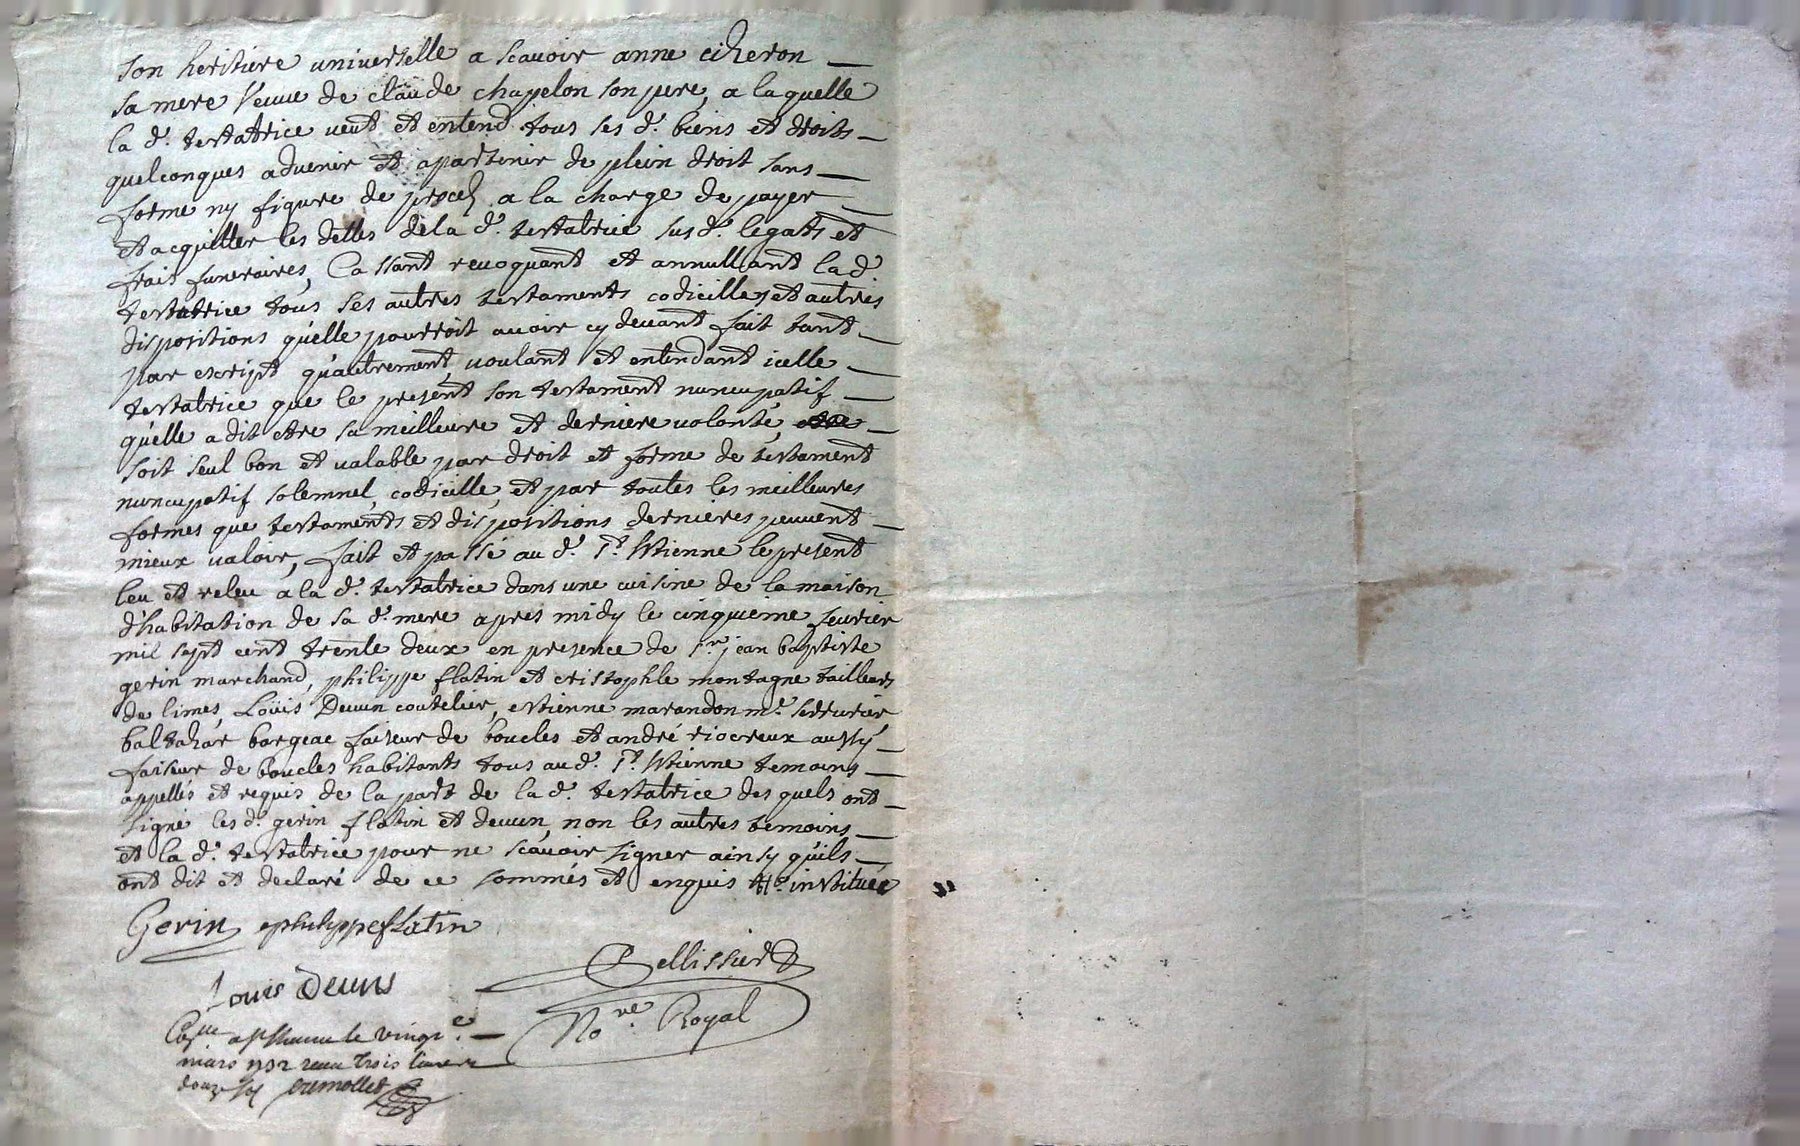 son heritiere universelle a scavoir anne ciheron
sa mere veuve de claude chapelon son pere, a laquelle
la d.e testatrice veut et entend tous ses d.s biens et droits
quelconques advenir et apartenir de plein droit sans
forme ny figure de proces a la charge de payer
et acquitter les dettes de la d.e testatrice sus d.s legats et
frais funeraires, Cassant revoquant et annullant lad.e
testatrice tous ses autres testaments codicilles et autres
dispositions qu'elle pourroit avoir cy devant fait tant
par escript qu'autrement, voulant et entendant icelle
testatrice que le present son testament nuncupatif
qu'elle a dit etre sa meilleure et derniere volonté,
soit seul bon et valable par droit et forme de testament
nuncupatif solemnel, codicille, et par toutes les meilleures
formes que testaments et dispositions dernieres peuvent
mieux valoir, fait et passé au d. S.t Estienne le present
leu et releu a la d.e testatrice dans une cuisine de la maison
d'habitation de sa d.e mere apres midy le cinquieme fevrier
mil sept cent trente deux en presence de s.r jean baptiste
gerin marchand, philippe flatin et cristophle montagne tailleurs
de limes, Loüis Devun coutelier, estienne marandon m.e serrurier
baltahar bargeac faiseur de boucles et andré riocreux aussy
faiseur de boucles habitants tous au d. S.t Estienne temoins
appellés et requis de la part de la d.e testatrice des quels ont
signe les d.s gerin flatin et devun, non les autres temoins
et la d.e testatrice pour ne scavoir signer ainsy qu'ils
ont dit et declaré de ce sommés et enquis instituée
Gerin philippe flatin
Louis Devuns
Pellissier
No.re Royal
le vingt
mars 1732 receu trois livres
douze s